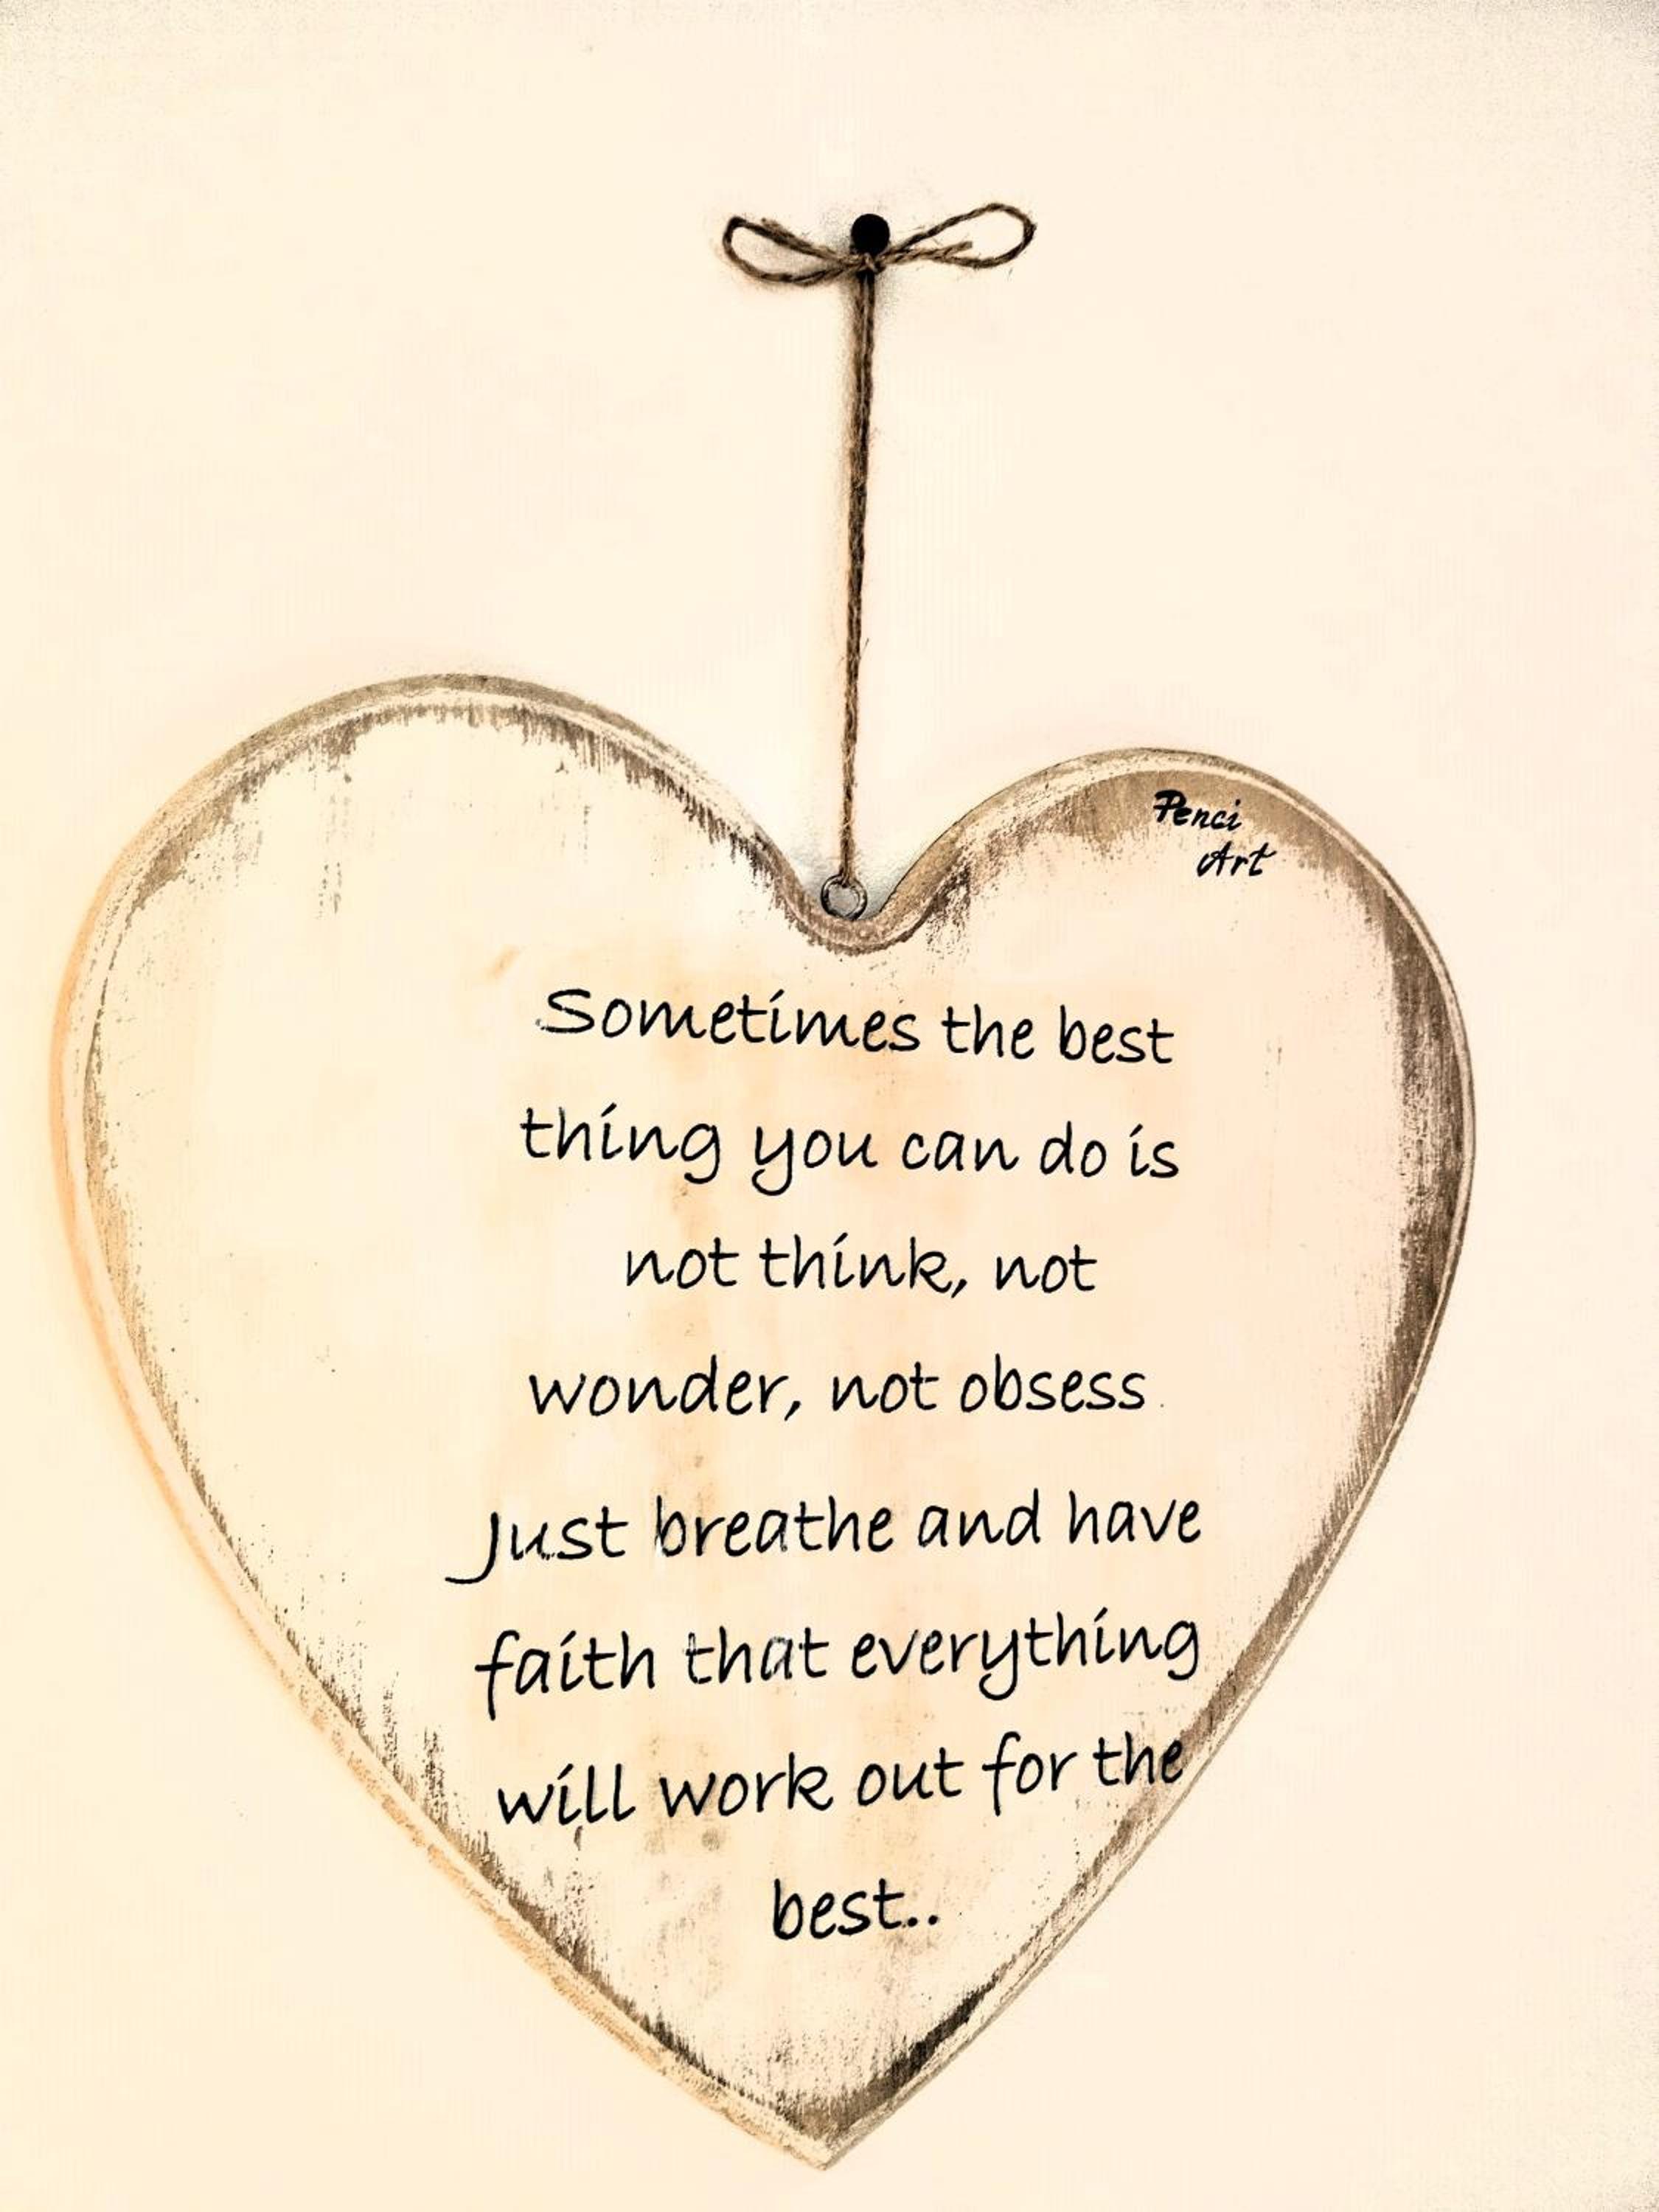 Penci
Art
Sometimes the best
thing you can do is
not think, not
wonder, not obsess
Just breathe and have
faith that everything
will work out for the
best..